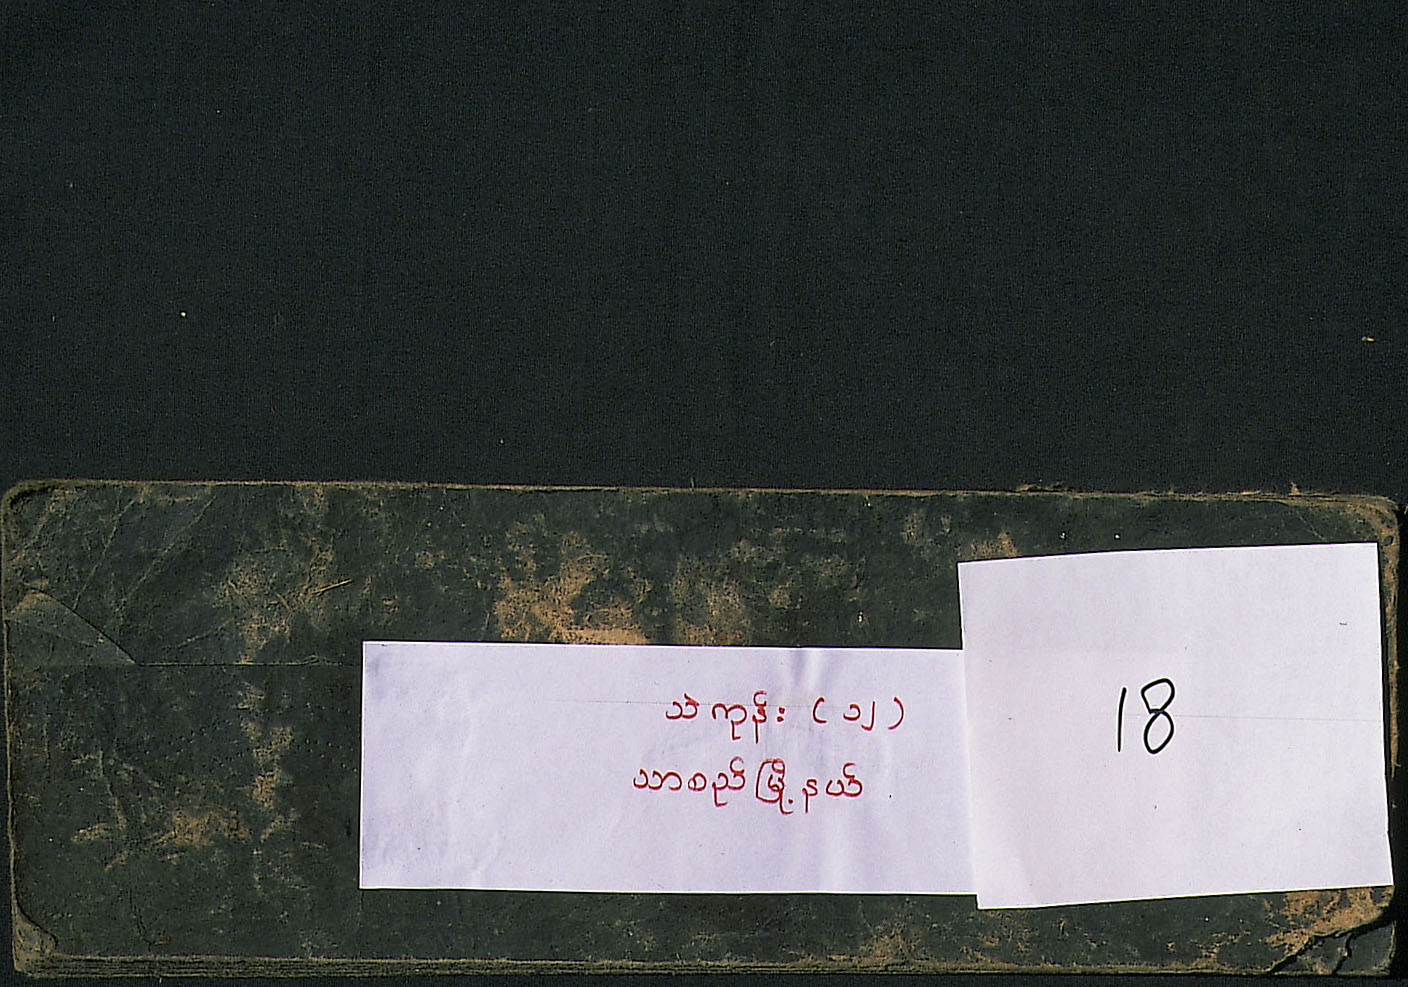 သဲကုန်း (၁၂)
သာစည်မြို့နယ်
18